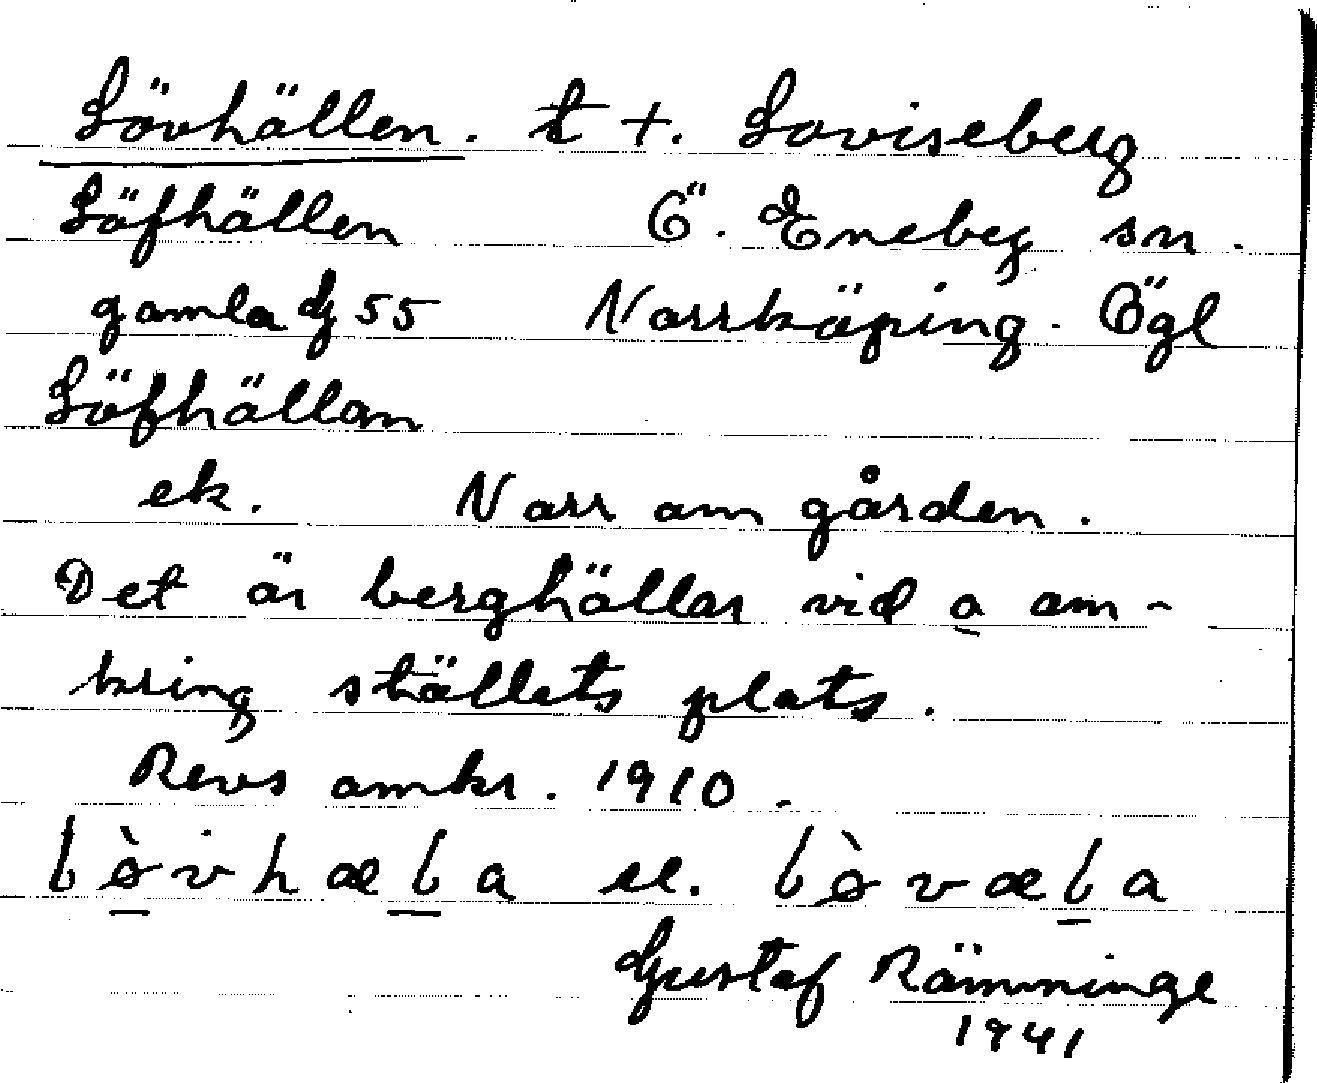 Lövhällen. t +. Loviseberg
Löfhällen Ö. Eneby sn.
gamla Ej 55 Norrköping. Ögl
Löfhällan
ek. Norr om gården.
Det är berghällar vid o om-
kring ställets plats.
Revs omkr. 1910.
lòvhæla el. lòvæla
Gustaf Ramninge
1941